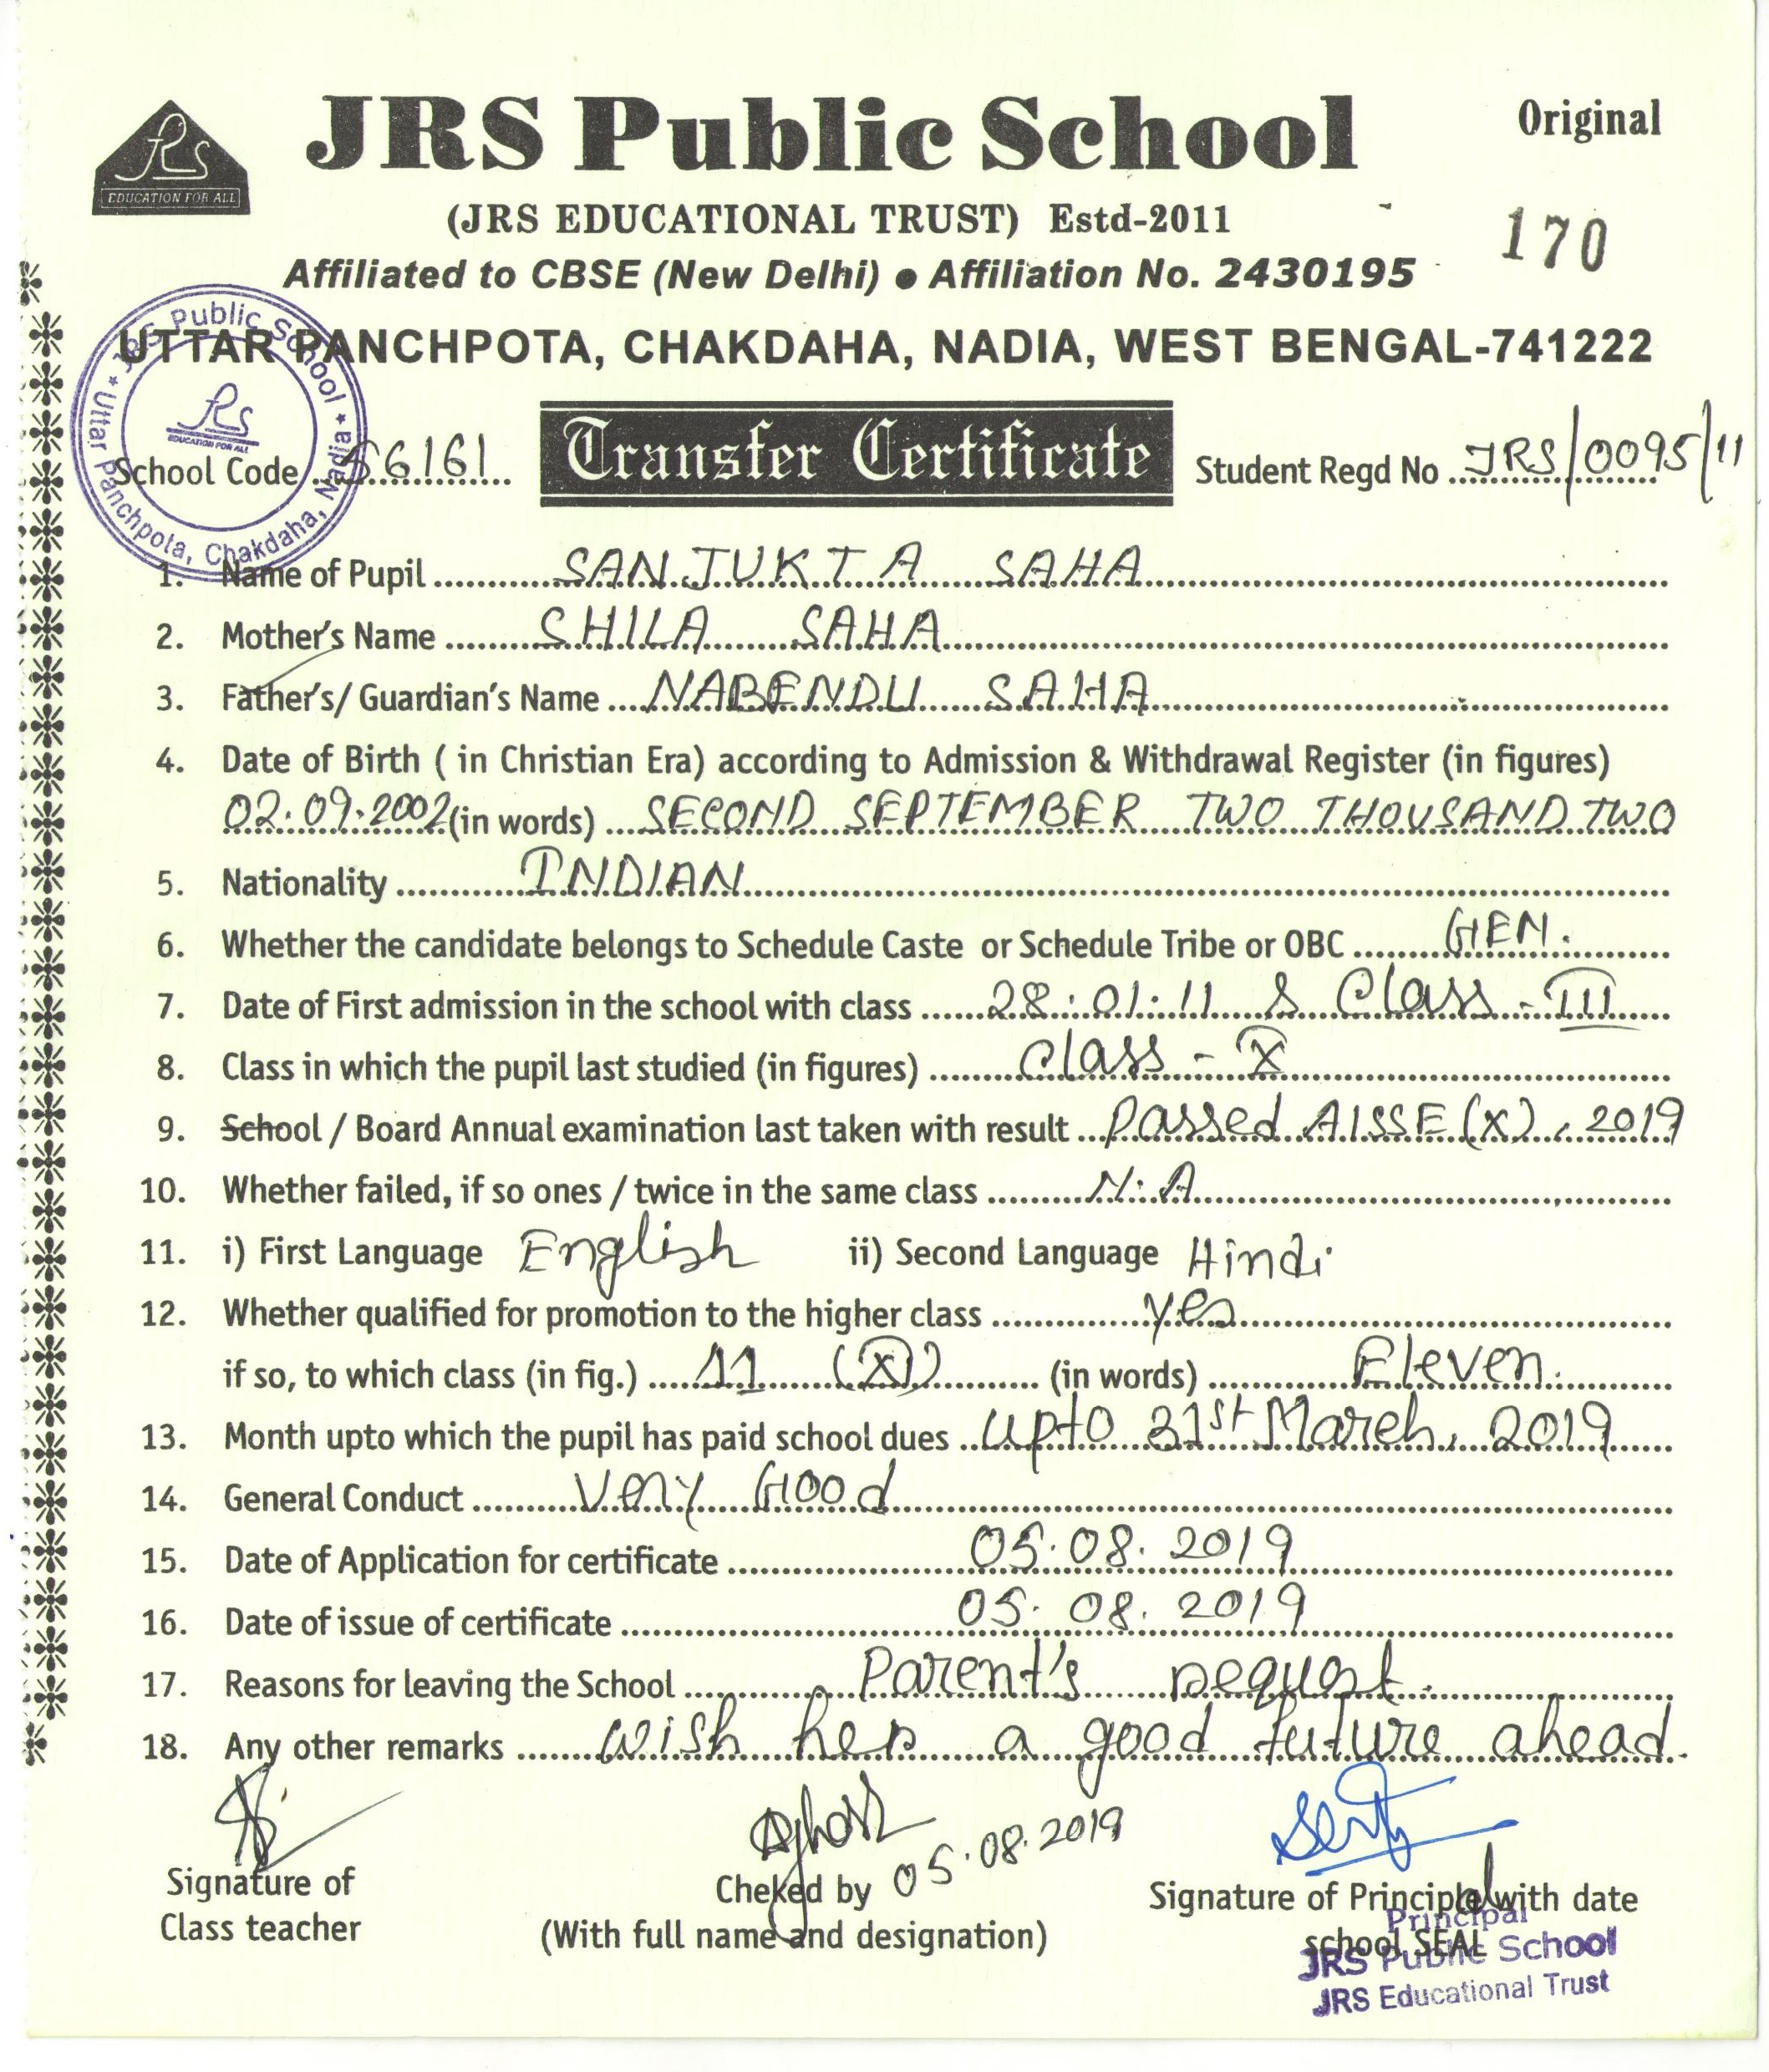 JRS Public School
Original
JRS
EDUCATION FOR ALL
(JRS EDUCATIONAL TRUST) Estd-2011
170
Affiliated to CBSE (New Delhi) ● Affiliation No. 2430195
UTTAR PANCHPOTA, CHAKDAHA, NADIA, WEST BENGAL-741222
JRS Public School * Uttar Panchpota, Chakdaha, Nadia *
JRS
EDUCATION FOR ALL
School Code 56161
Transfer Certificate
Student Regd No JRS/0095/11
1. Name of Pupil SANJUKTA SAHA
2. Mother's Name SHILA SAHA
3. Father's/ Guardian's Name NABENDU SAHA
4. Date of Birth ( in Christian Era) according to Admission & Withdrawal Register (in figures)
02.09.2002 (in words) SECOND SEPTEMBER TWO THOUSAND TWO
5. Nationality INDIAN
6. Whether the candidate belongs to Schedule Caste or Schedule Tribe or OBC GEN.
7. Date of First admission in the school with class 28.01.11 & Class - III
8. Class in which the pupil last studied (in figures) Class - X
9. School / Board Annual examination last taken with result Passed AISSE (X), 2019
10. Whether failed, if so ones / twice in the same class N.A
11. i) First Language English ii) Second Language Hindi
12. Whether qualified for promotion to the higher class yes
if so, to which class (in fig.) 11 (XI) (in words) Eleven.
13. Month upto which the pupil has paid school dues upto 31st March, 2019
14. General Conduct Very Good
15. Date of Application for certificate 05.08.2019
16. Date of issue of certificate 05.08.2019
17. Reasons for leaving the School Parent's request.
18. Any other remarks wish her a good future ahead.
05.08.2019
Signature of
Class teacher
Cheked by
(With full name and designation)
Signature of Principal with date
school SEAL
Principal
JRS Public School
JRS Educational Trust